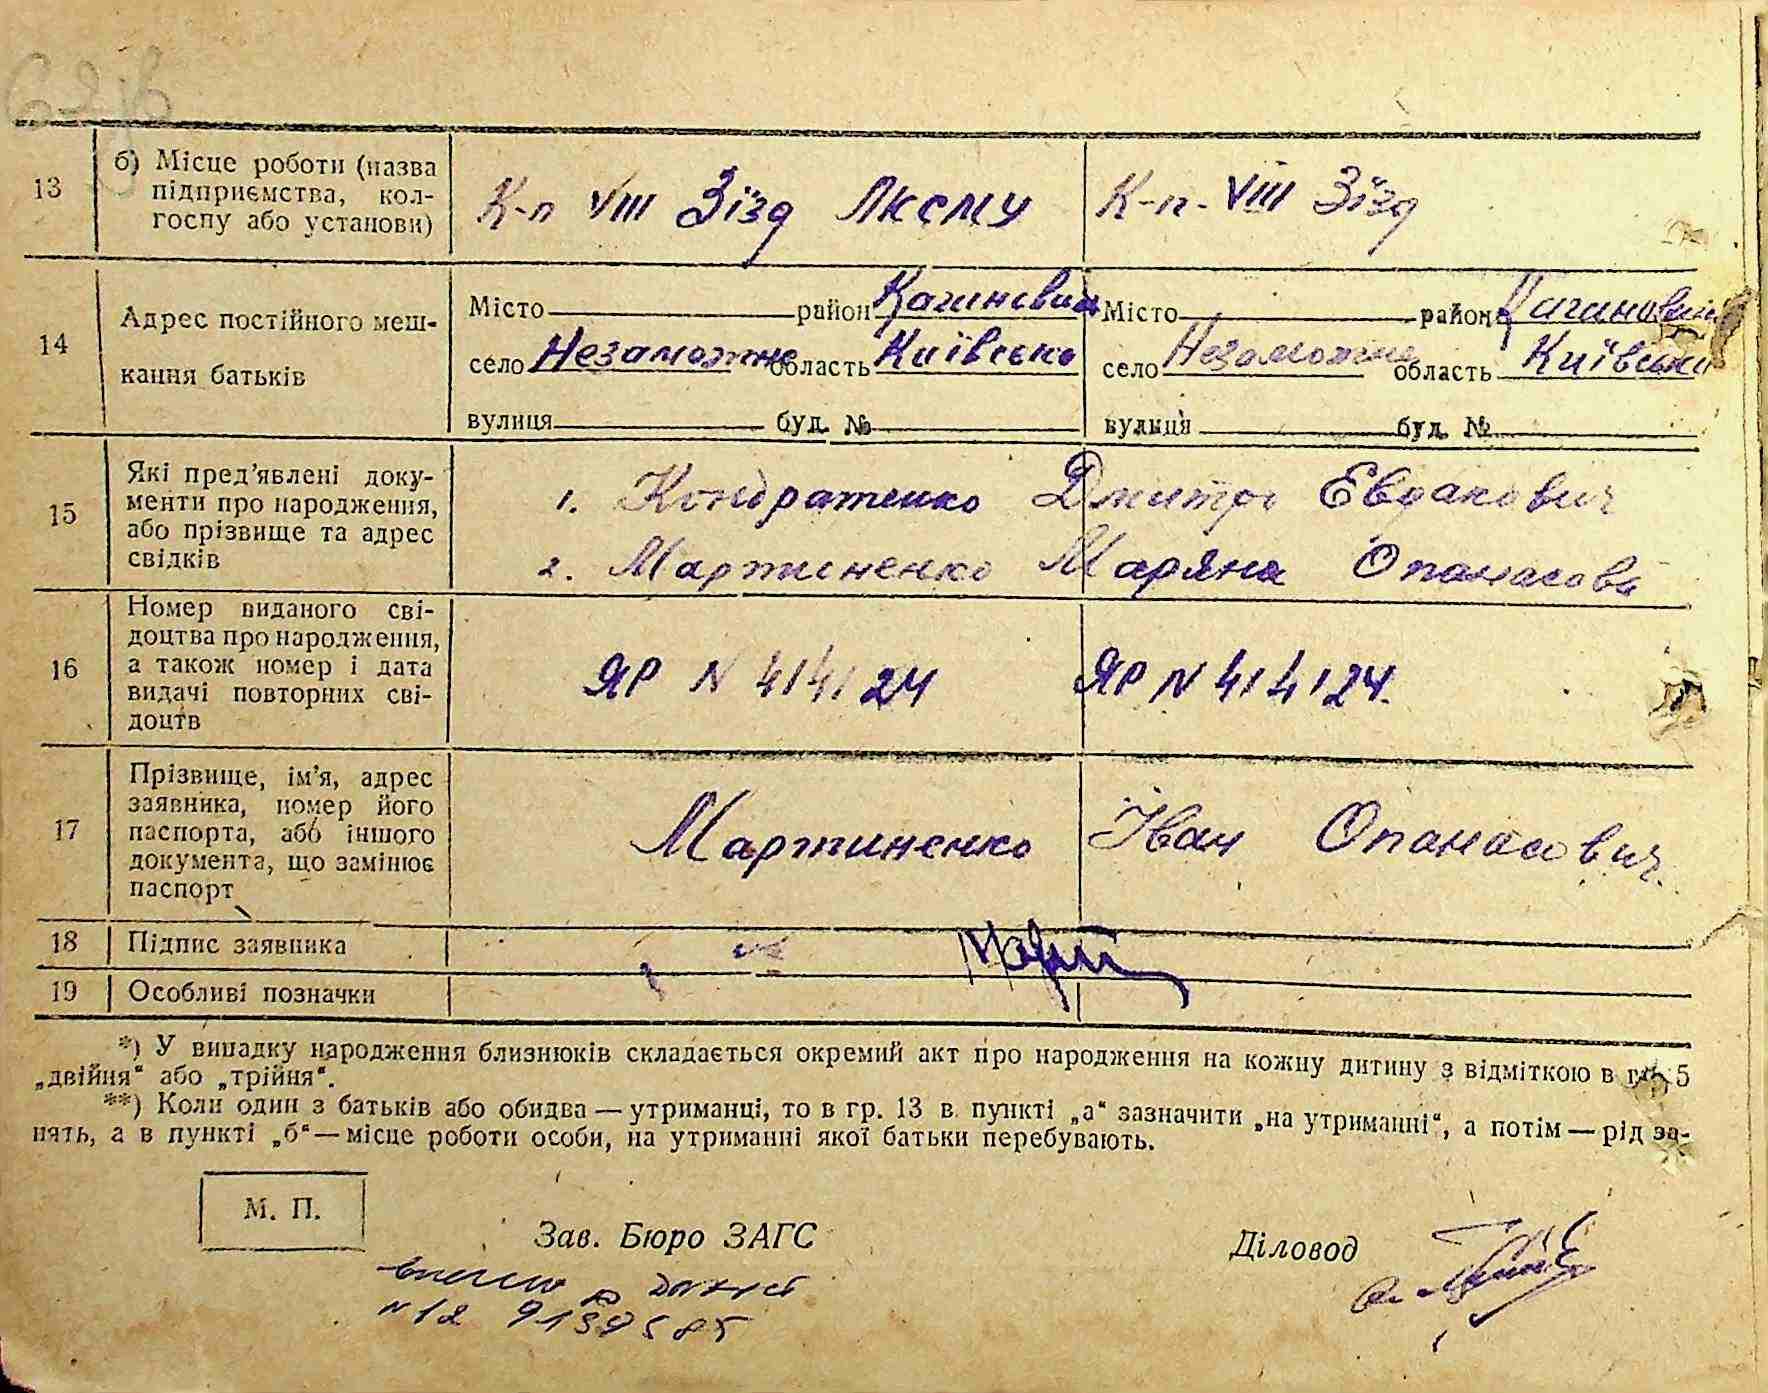 13 б) Місце роботи (назва
підприємства, кол-
госпу або установи)
К-п VIII Зїзд ЛКСМУ К-п. VIII Зїзд
14 Адрес постійного меш-
кання батьків
Місто район Місто район
село Незаможне область Київсько село Незаможне область Київсько
вулиця буд. № вулиця буд. №
15 Які пред'явлені доку-
менти про народження,
або прізвище та адрес
свідків
1. Кондратенко Дмитро Евдакович
2. Мартиненко Маряна Опанасова
16 Номер виданого сві-
доцтва про народження,
а також номер і дата
видачі повторних сві-
доцтв
ЯР N 414124 ЯР N 414124.
17 Прізвище, ім'я, адрес
заявника, номер його
паспорта, або іншого
документа, що замінює
паспорт
Мартиненко Іван Опанасович.
18 Підпис заявника
19 Особливі позначки
*) У випадку народження близнюків складається окремий акт про народження на кожну дитину з відміткою в гр. 5
„двійня“ або „трійня“.
**) Коли один з батьків або обидва — утриманці, то в гр. 13 в пункті „а“ зазначити „на утриманні“, а потім — рід за-
нять, а в пункті „б“ — місце роботи особи, на утриманні якої батьки перебувають.
М. П.
Зав. Бюро ЗАГС
Діловод